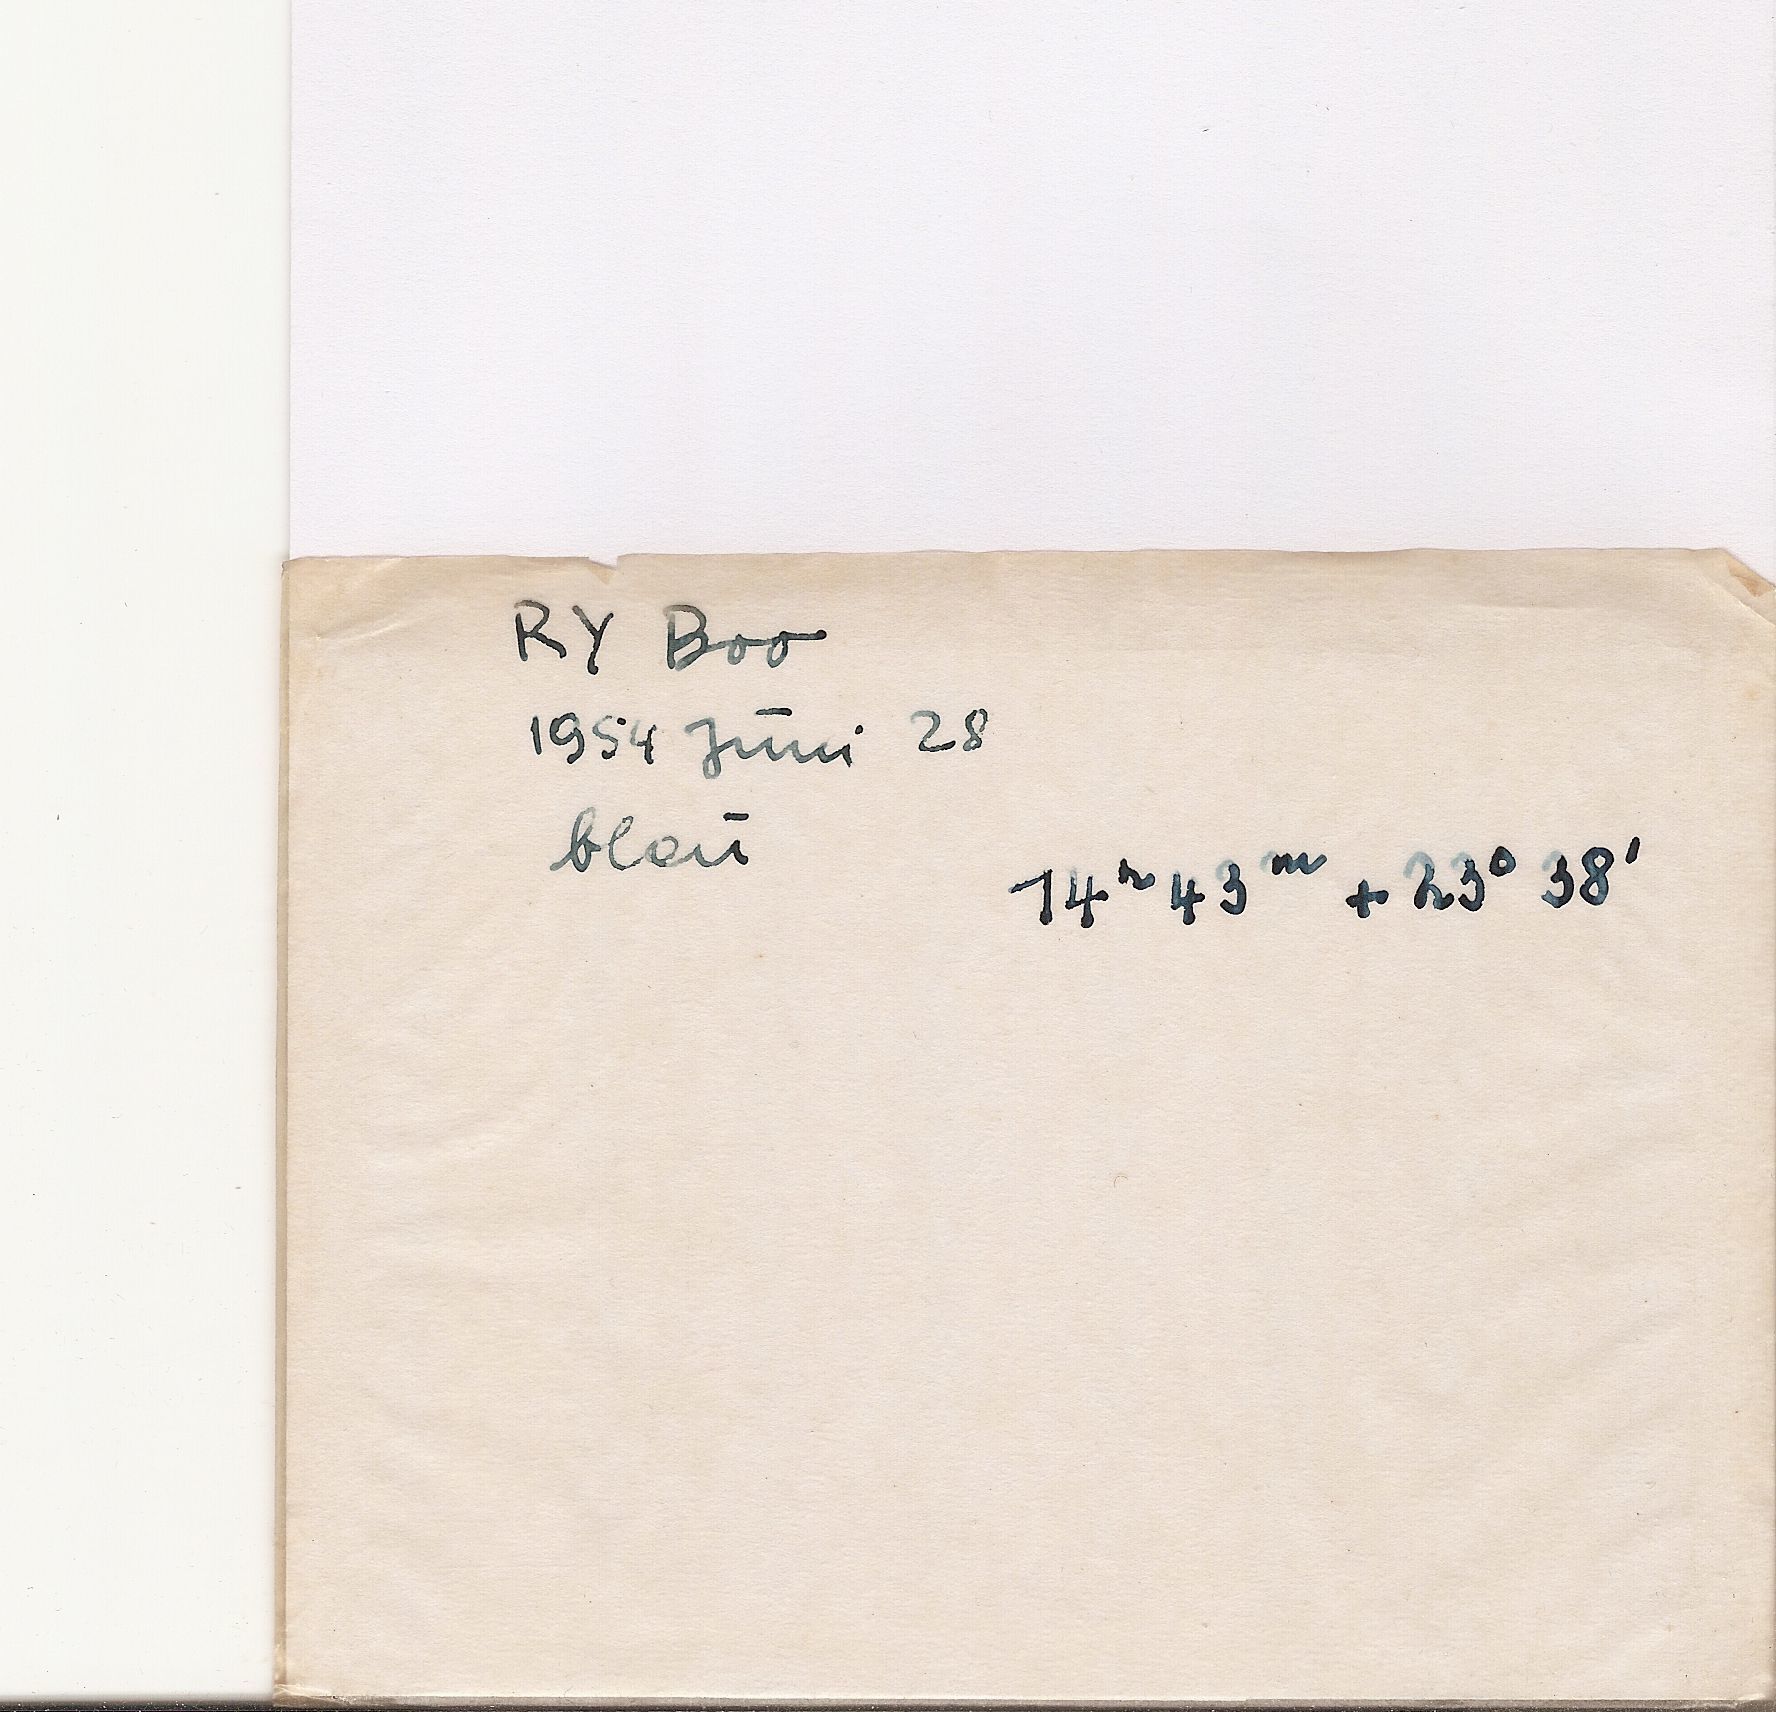 RY Boo
1954 Juni 28
blau
14ʰ 43ᵐ + 23° 38'